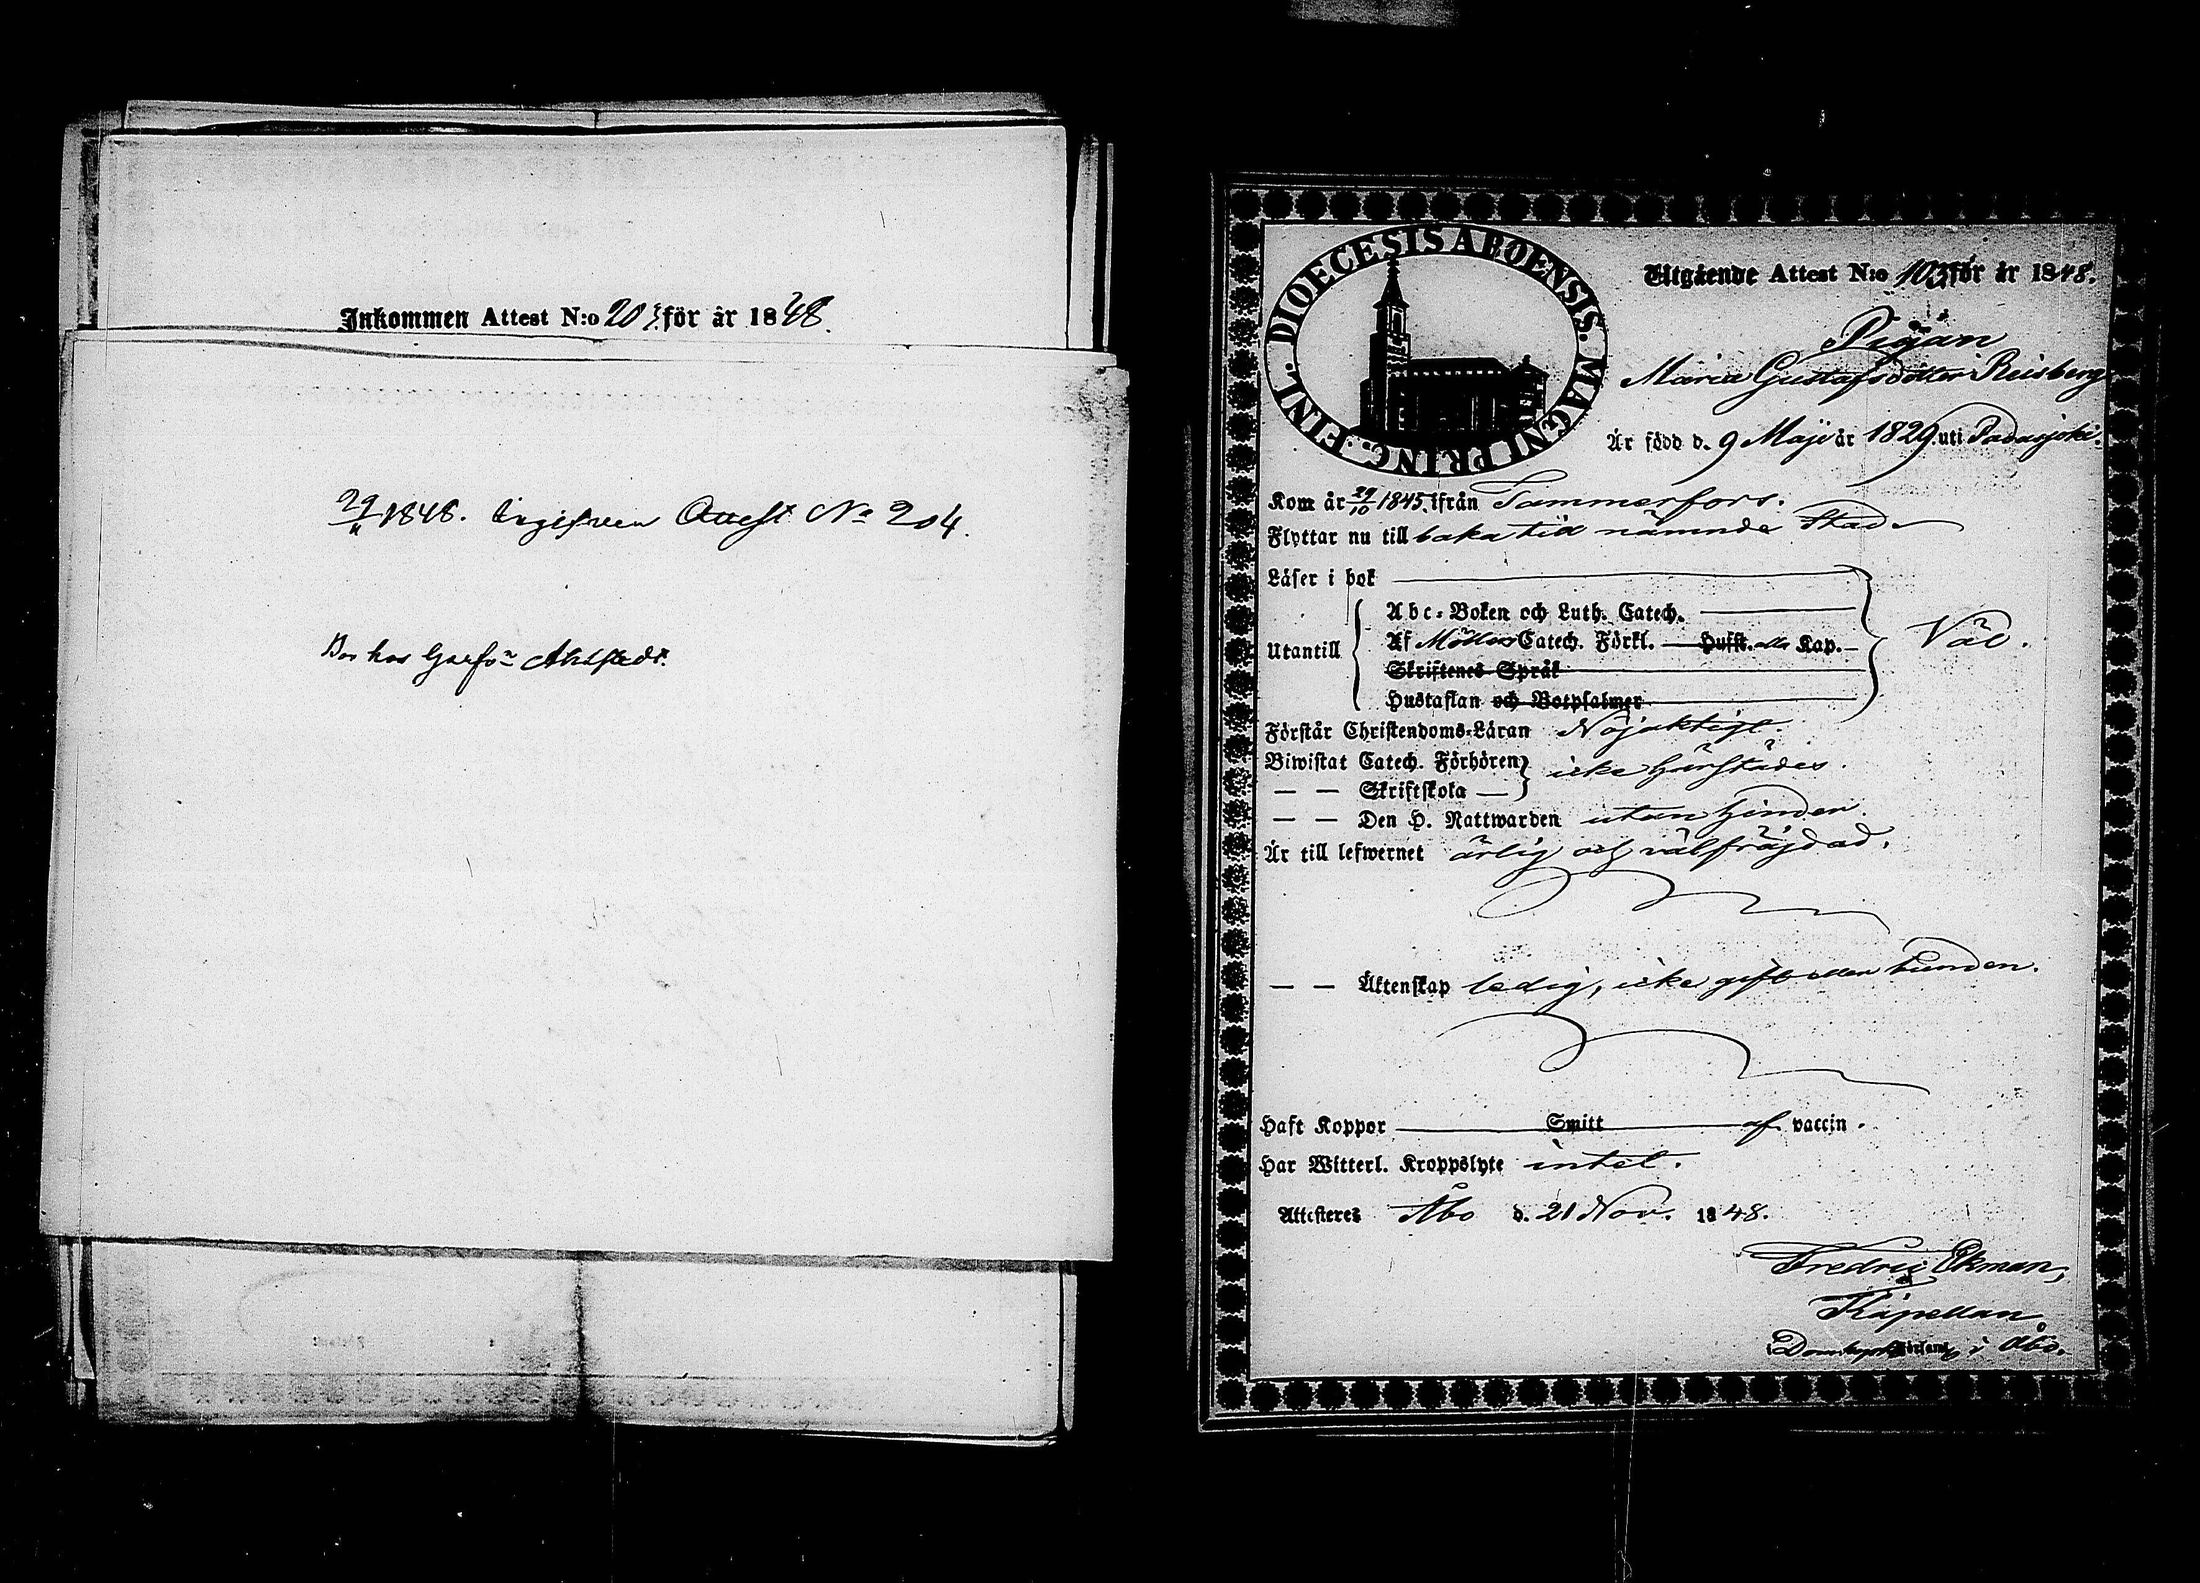 Inkommen Attest N:o 203 för år 1848.
29/11 1848. Ingifven Attest No 204.
Bor hos Garfvn Ahlstedt.
DIOECESIS ABOENSIS. MAGNI PRINC. FINL.
Utgående Attest N:o 103 för år 1848.
Pigan
Maria Gustafsdotter Reisberg
Är född d. 9 Maji år 1829 uti Padasjoki.
Kom år 29/10 1845 ifrån Tammerfors.
Flyttar nu till baka till nämnde Stad
Läser i bok
Abc-Boken och Luth. Catech.
Utantill
Af Möllers Catech. Förkl. Hufst. alla Kap.
Väl.
Skriftenes Språk
Hustaflan och Botpsalmer
Förstår Christendoms-Läran Nöjaktigt.
Biwistat Catech. Förhören
icke härstädes.
— — Skriftskola —
— — Den H. Nattwarden utan hinder.
Är till lefwernet ärlig och välfräjdad.
— — Äktenskap ledig, icke gift eller bunden.
Haft Koppor Smitt af vaccin.
Har Witterl. Kroppslyte intet.
Attesteres Åbo d. 21 Nov. 1848.
Fredric Ekman,
Kapellan
i Åbo.